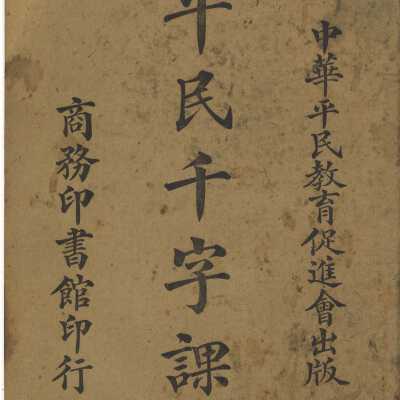 中華平民教育促進會出版
平民千字課
商務印書館印行